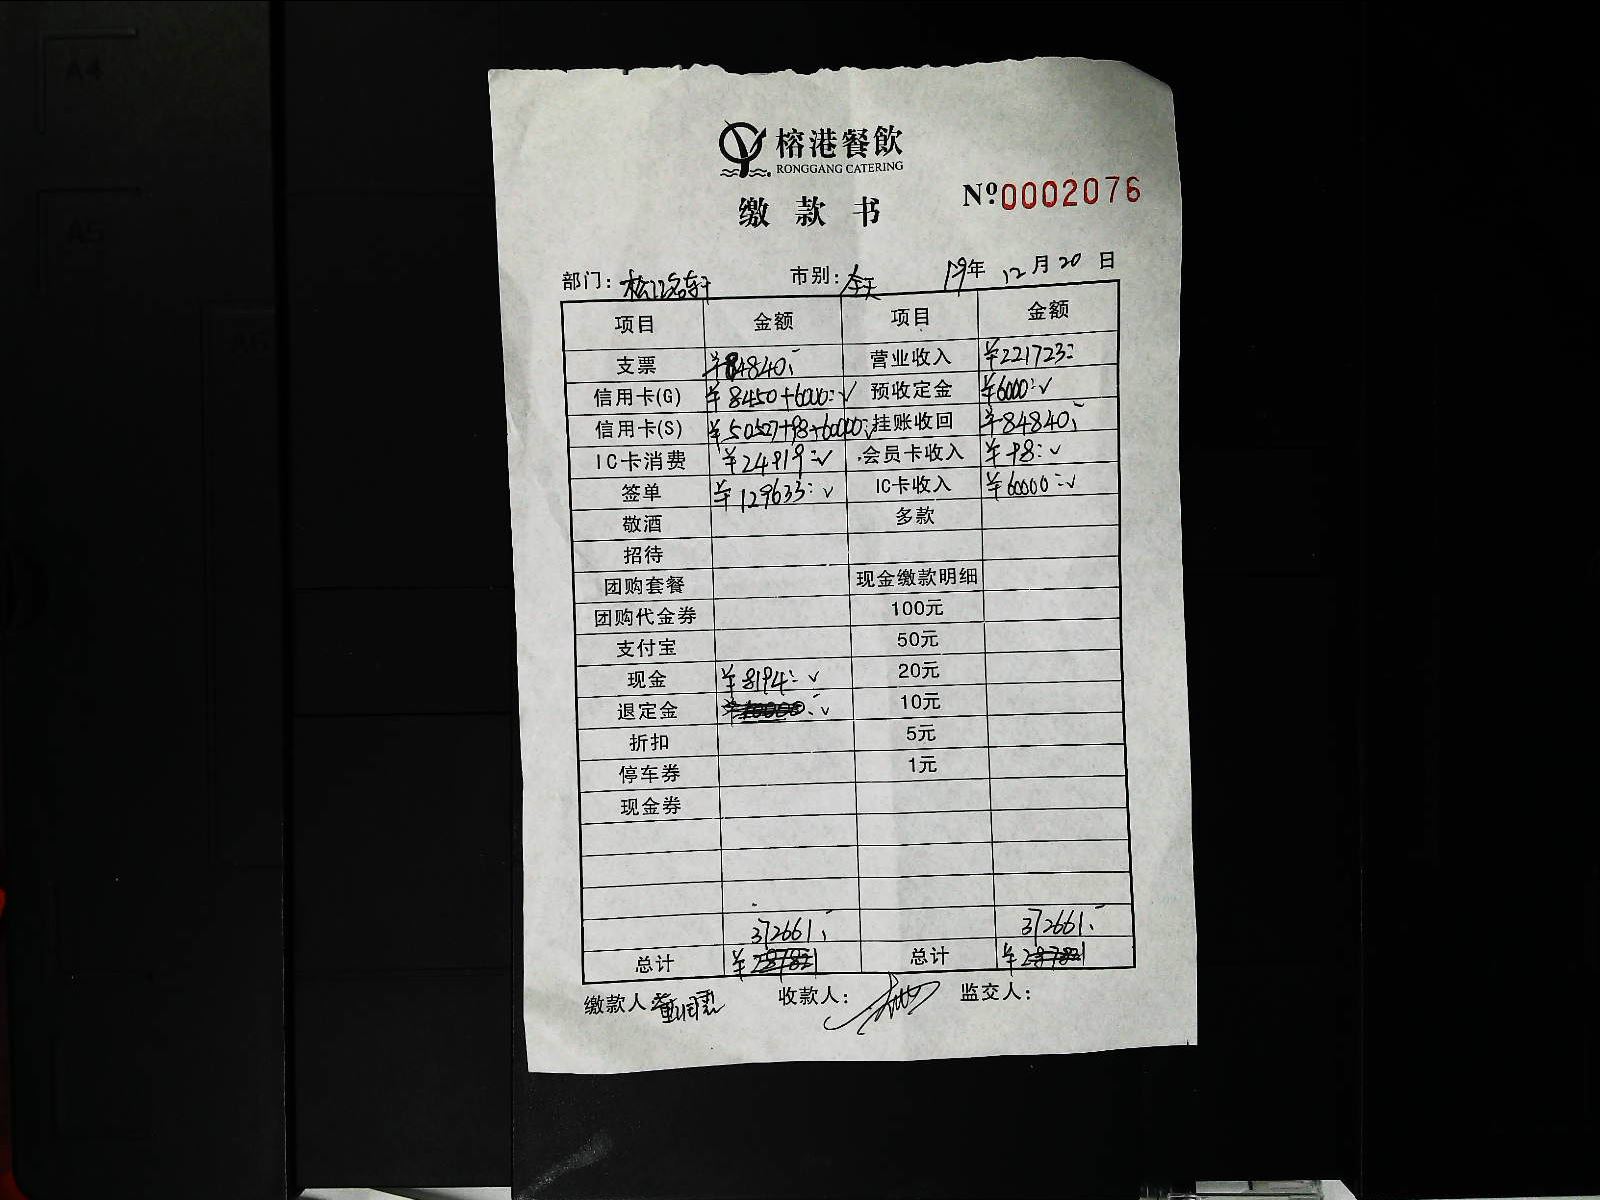 A4
A5
A6
榕港餐飲
RONGGANG CATERING
缴款书
Nº0002076
部门：松江名轩 市别：全天 19年12月20日
项目 金额 项目 金额
支票 ¥84840:- 营业收入 ¥221723:-
信用卡(G) ¥8450+6000:-✓ 预收定金 ¥6000:-✓
信用卡(S) ¥50527+98+60000:-✓ 挂账收回 ¥84840:-
IC卡消费 ¥24919:-✓ 会员卡收入 ¥98:-✓
签单 ¥129633:-✓ IC卡收入 ¥60000:-✓
敬酒 多款
招待
团购套餐 现金缴款明细
团购代金券 100元
支付宝 50元
现金 ¥8194:-✓ 20元
退定金 10元
折扣 5元
停车券 1元
现金券
372661:- 372661:-
总计 ¥287821 总计 ¥287821
缴款人 收款人： 监交人：